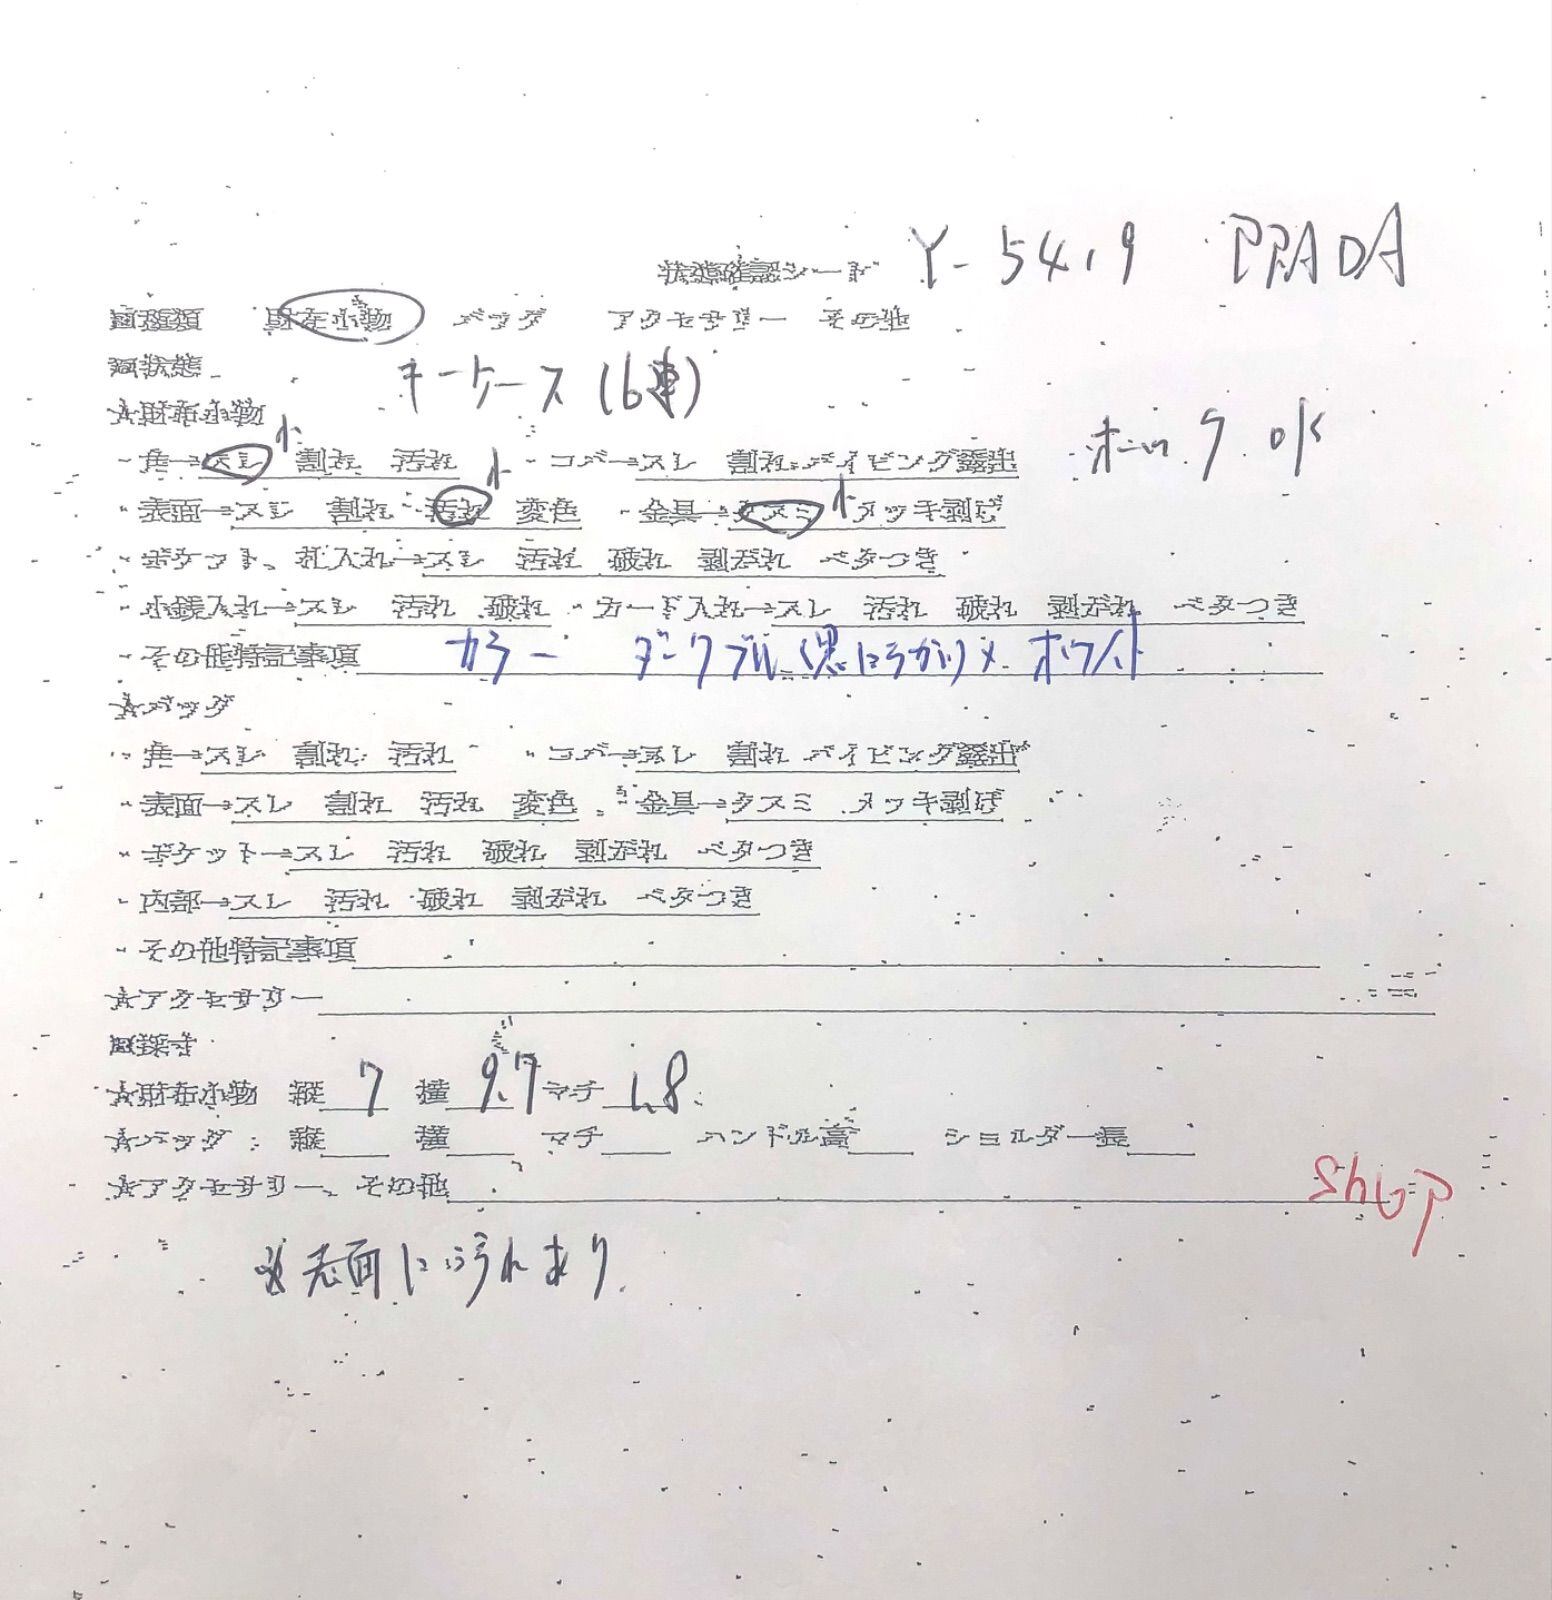 状態確認シート Y-5419 PRADA
□種類 財布小物 バッグ アクセサリー その他
□状態 キーケース(6連)
☆財布小物
・角→スレ 小 割れ 汚れ ・コバ→スレ 割れ パイピング露出 OK
・表面→スレ 割れ 汚れ 小 変色 ・金具→クスミ 小 メッキ剥げ
・ポケット、札入れ→スレ 汚れ 破れ 剥がれ ベタつき
・小銭入れ→スレ 汚れ 破れ ・カード入れ→スレ 汚れ 破れ 剥がれ ベタつき
・その他特記事項 カラー ダークブル(黒にちかい)× ホワイト
☆バッグ
・角→スレ 割れ 汚れ ・コバ→スレ 割れ パイピング露出
・表面→スレ 割れ 汚れ 変色 ・金具→クスミ メッキ剥げ
・ポケット→スレ 汚れ 破れ 剥がれ ベタつき
・内部→スレ 汚れ 破れ 剥がれ ベタつき
・その他特記事項
☆アクセサリー
□採寸
☆財布小物 縦 7 横 9.7 マチ 1.8
☆バッグ: 縦 横 マチ ハンドル高 ショルダー長
☆アクセサリー、その他
※表面に汚れあり